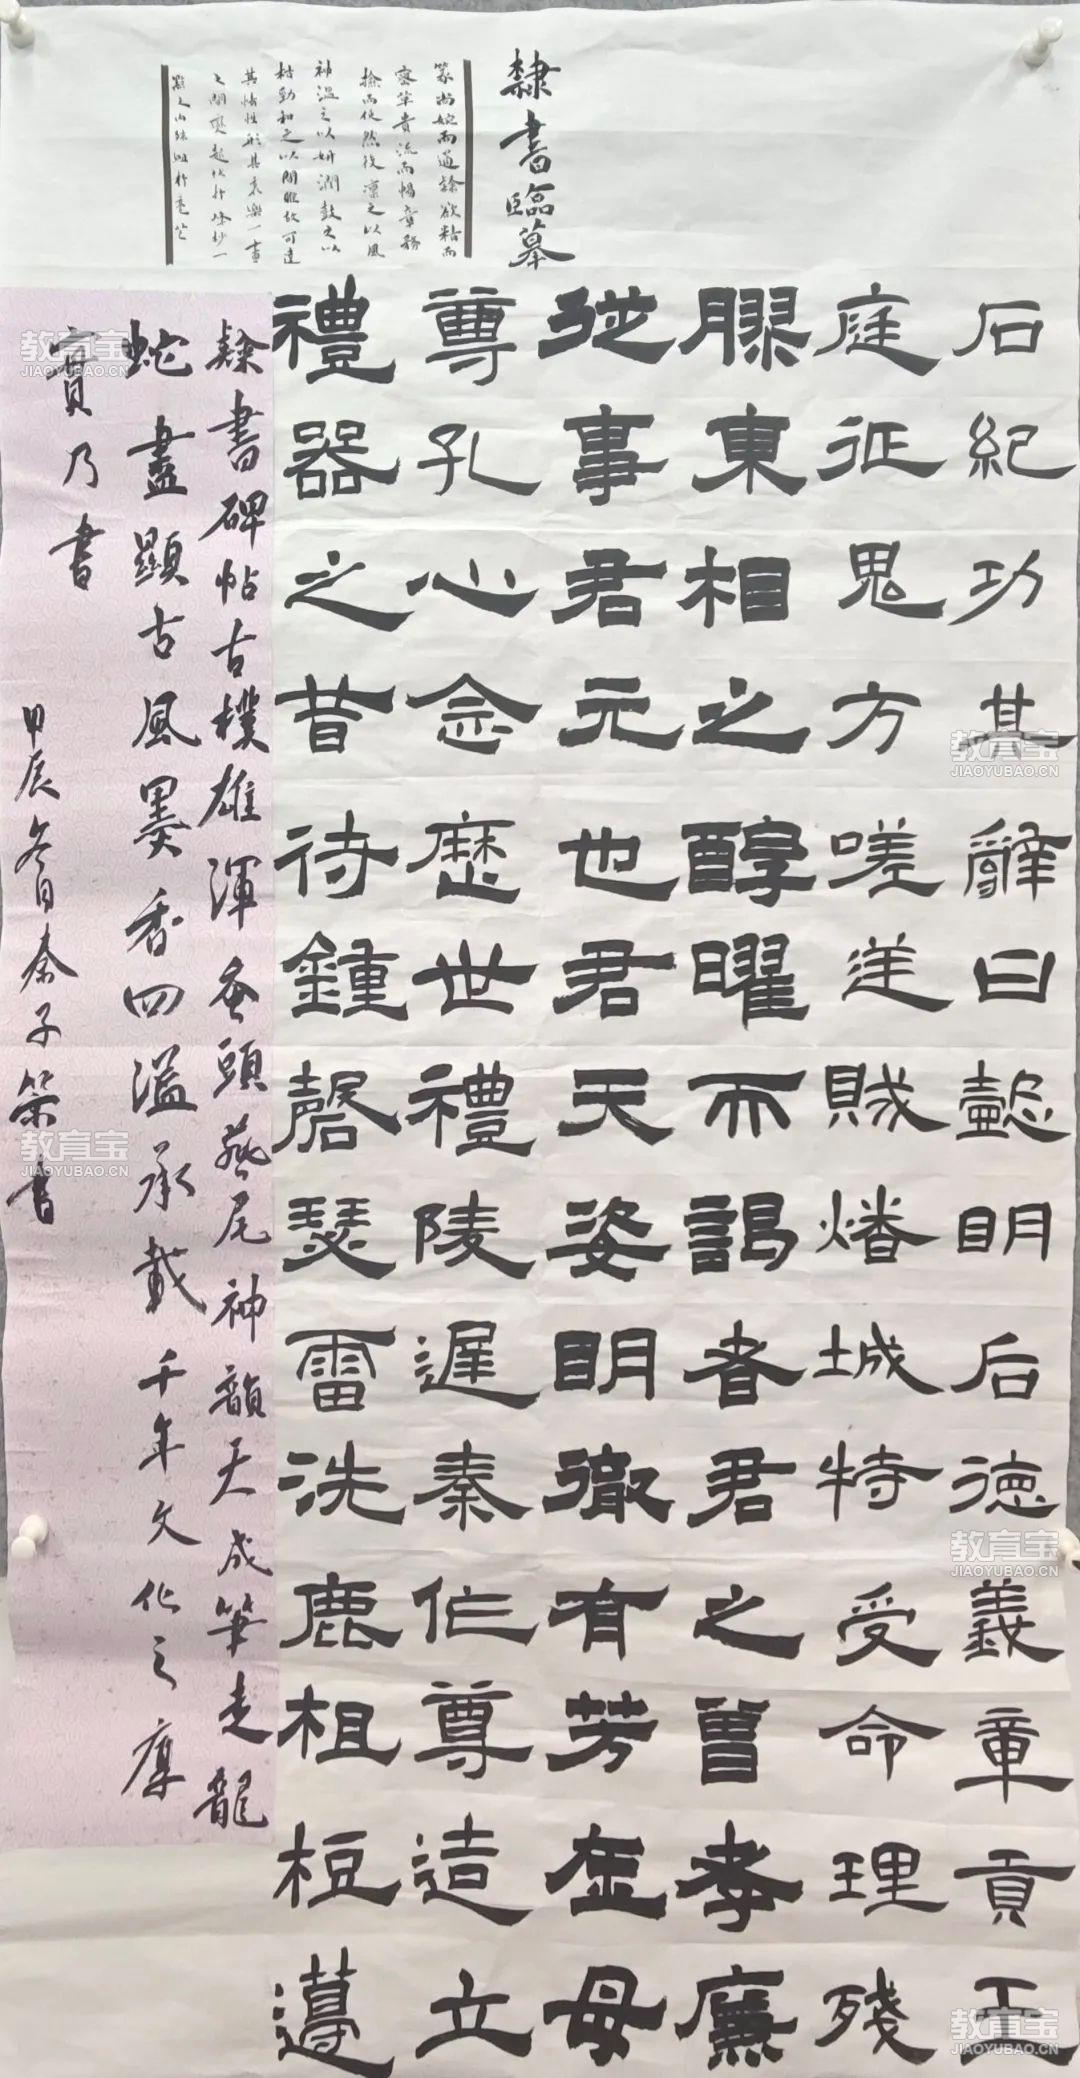 隸書臨摹
篆尚婉而通隸欲精而
密草貴流而暢章務
檢而便然後凜之以風
神溫之以妍潤鼓之以
枯勁和之以閒雅故可達
其情性形其哀樂一畫
之間變起伏於峰杪一
點之內殊衄挫於毫芒
石紀功其辭曰懿明后德義章貢王
庭征鬼方嗟逆賊燔城特受命理殘
膠東相之醇曜而謁者君之曾孝廉
從事君元也君天姿明徹有芳在母
尊孔心念歷世禮陵遲秦作尊造立
禮器之昔待鍾磬瑟雷洗鹿柤梪邊
隸書碑帖古樸雄渾蠶頭燕尾神韻天成筆走龍
蛇盡顯古風墨香四溢承載千年文化之厚
實乃書
甲辰冬月秦子策書
教育宝
JIAOYUBAO.CN
教育宝
JIAOYUBAO.CN
教育宝
JIAOYUBAO.CN
教育宝
JIAOYUBAO.CN
教育宝
JIAOYUBAO.CN
教育宝
JIAOYUBAO.CN